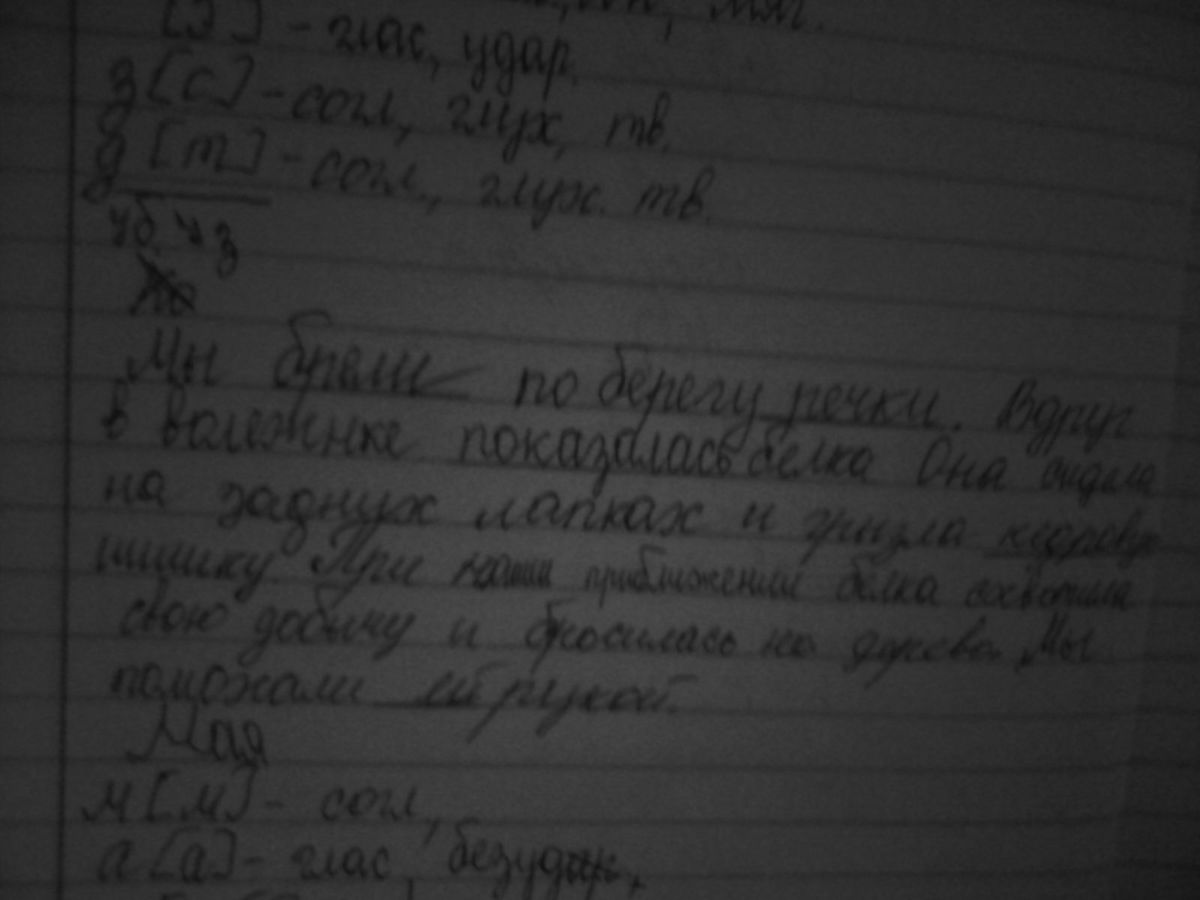 [э] - глас, удар.
з [с] - согл, глух, тв.
д [т] - согл., глух. тв.
4б 4з
Мы брели по берегу речки. Вдруг
в валежнке показалась белка Она сидела
на задних лапках и грызла кедровую
шишку При наши приближении белка схватила
свою добычу и бросилась на дерево. Мы
помохали ей рукой.
Мая
м [м] - согл,
а [а] - глас, безудар,